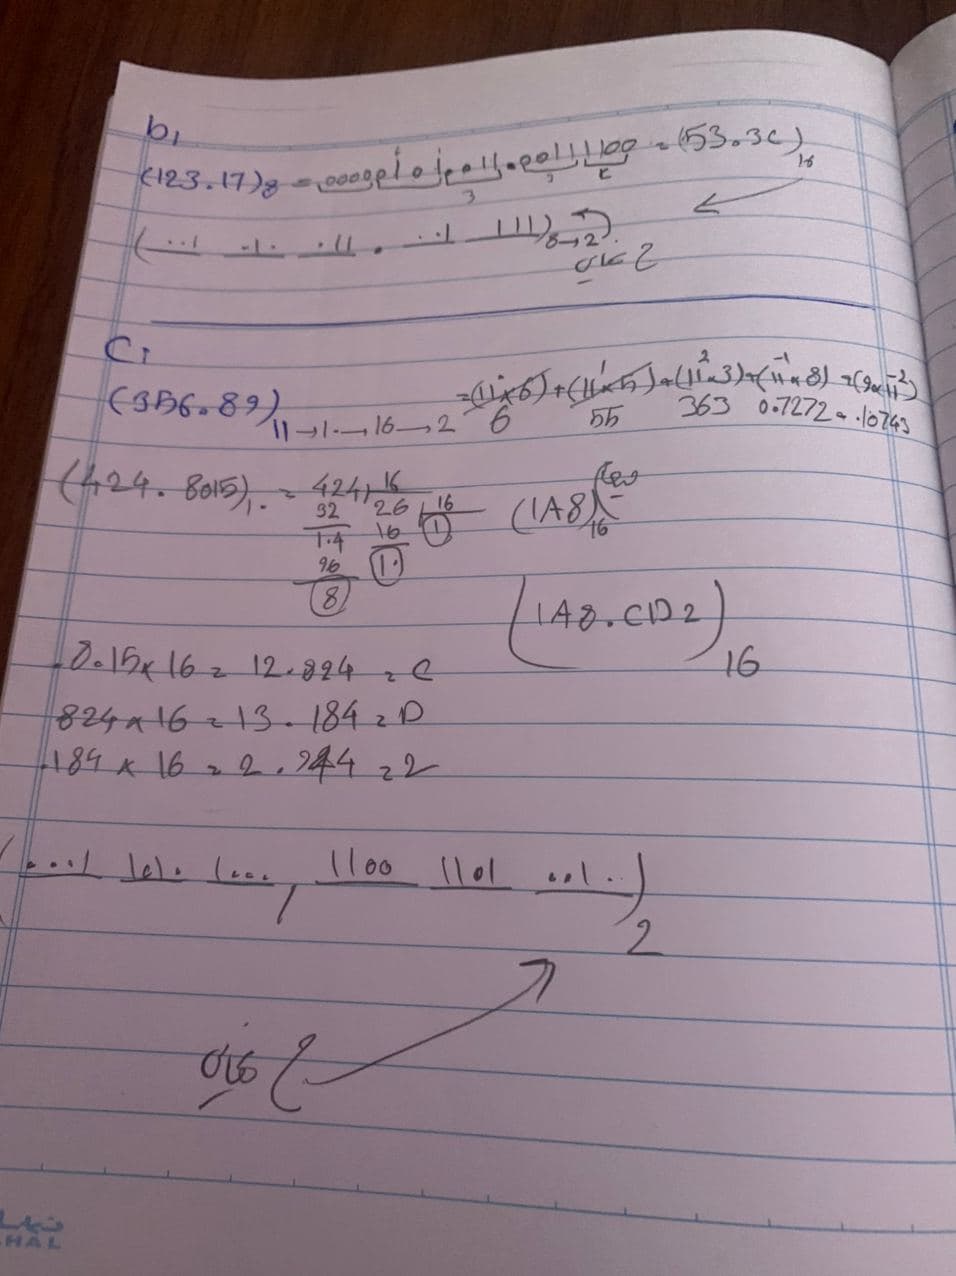 b,
(123.17)8 = 000001010011.00111100 = (53.3C)16
3 3 C
(..1 .1. .11 . ..1 111)8→2
C,
(356.89)11→1.→16→2 =(11°×6)+(11¹×5)+(11²×3)+(11⁻¹×8)+(9×11⁻²)
6 55 363 0.7272 .10743
(424.8015)1. = 424 16
32 26 16
1.4 16 1
96 1.
8
(1A8)16
(1A8.CD2)16
.8.15×16=12.824=C
824×16=13.184=D
.184×16=2.944=2
(...1 1.1. 1..., 1100 1101 ..1.)2